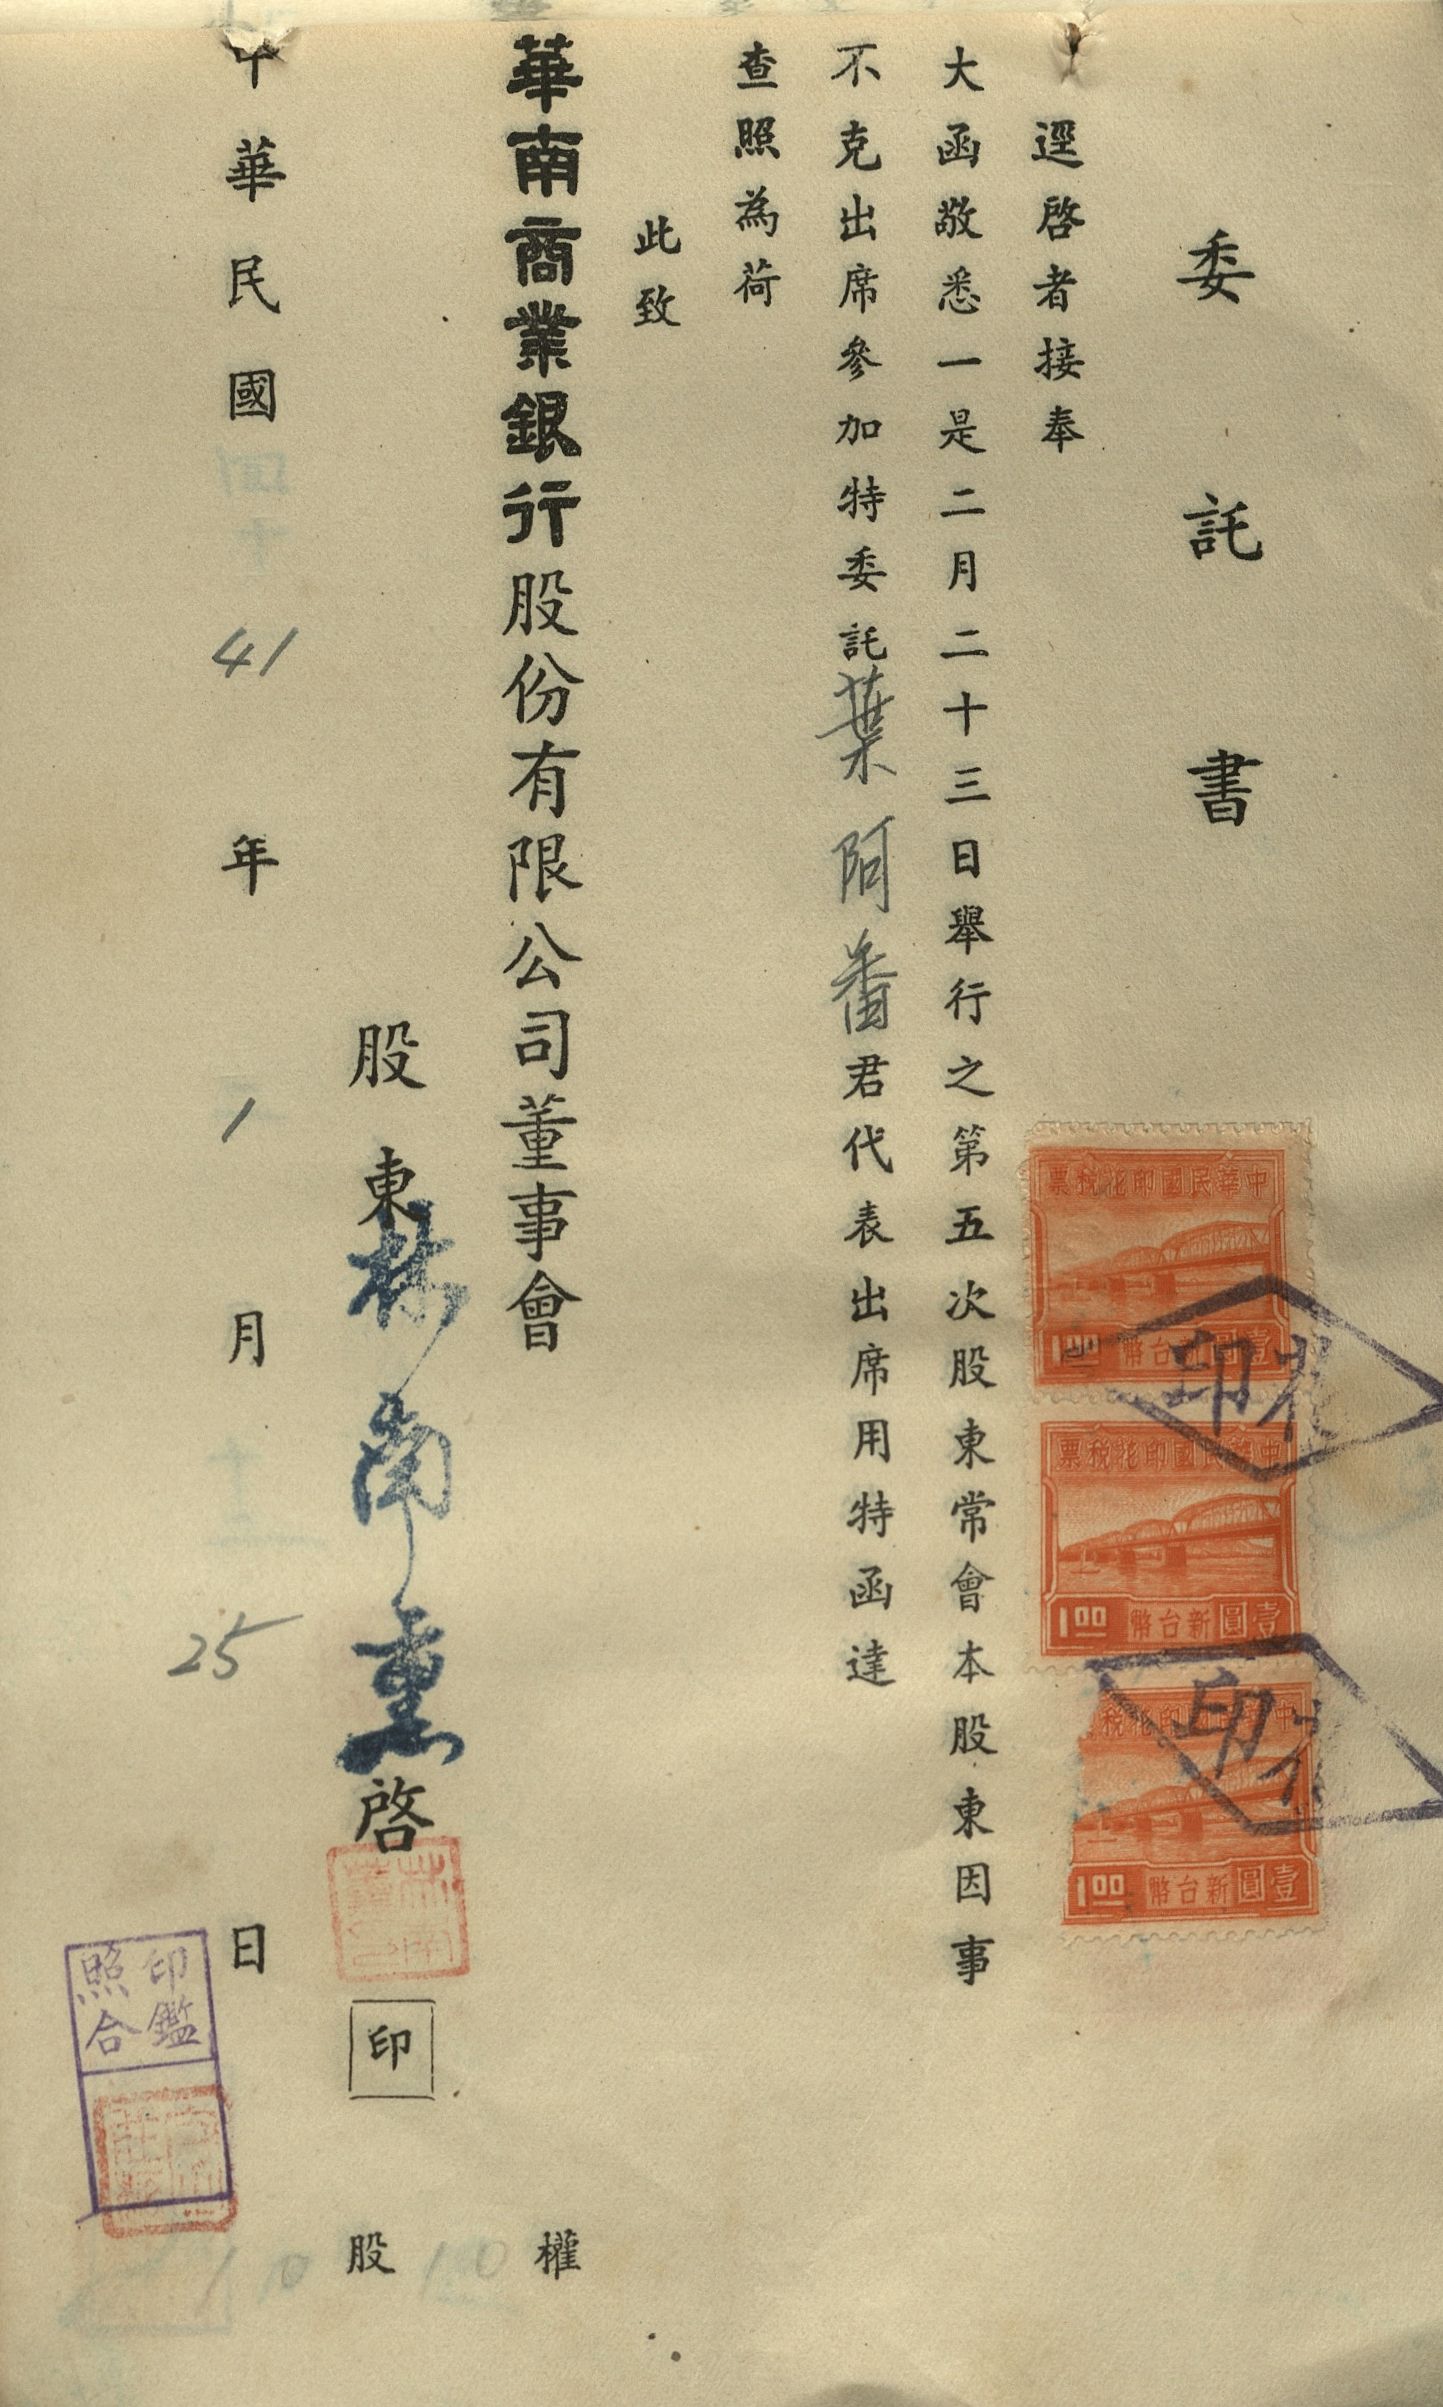 委託書
逕啓者接奉
大函敬悉一是二月二十三日舉行之第五次股東常會本股東因事
不克出席參加特委託葉阿番君代表出席用特函達
查照為荷
此致
華南商業銀行股份有限公司董事會
股東林南薰啓
印
權
股
中華民國41年1月25日
中華民國印花稅票
1.00
新台幣壹圓
中華民國印花稅票
1.00
新台幣壹圓
1.00
新台幣壹圓
印花
印花
印鑑
照合